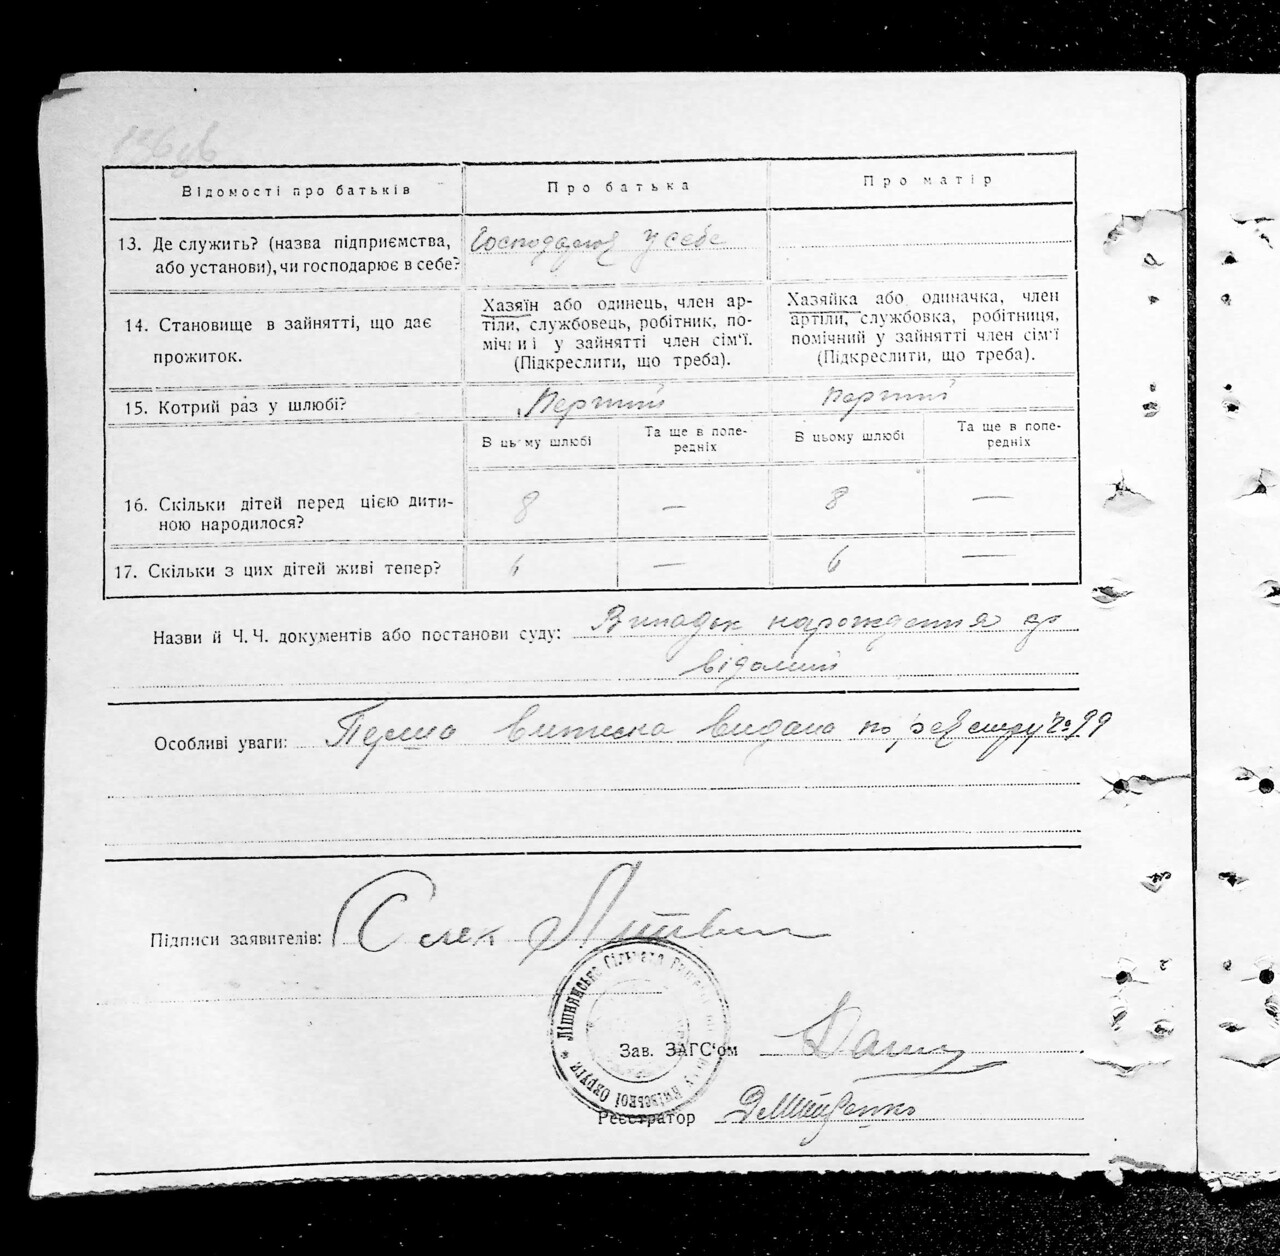 136зв
Відомості про батьків
Про батька
Про матір
13. Де служить? (назва підприємства,
або установи), чи господарює в себе?
Господарює у себе
14. Становище в зайнятті, що дає
прожиток.
Хазяїн або одинець, член ар-
тіли, службовець, робітник, по-
мічний у зайнятті член сім'ї.
(Підкреслити, що треба).
Хазяйка або одиначка, член
артіли, службовка, робітниця,
помічний у зайнятті член сім'ї
(Підкреслити, що треба).
15. Котрий раз у шлюбі?
Перший
Перший
В цьому шлюбі
Та ще в попе-
редніх
В цьому шлюбі
Та ще в попе-
редніх
16. Скільки дітей перед цією дити-
ною народилося?
8 — 8 —
17. Скільки з цих дітей живі тепер?
6 — 6 —
Назви й Ч. Ч. документів або постанови суду: Випадок нарождення
відомий
Особливі уваги: Перша виписка видана по реєстру № 99
Підписи заявителів: Литвин
Лішнянська Сільрада Київської Округи
Зав. ЗАГС'ом
Реєстратор